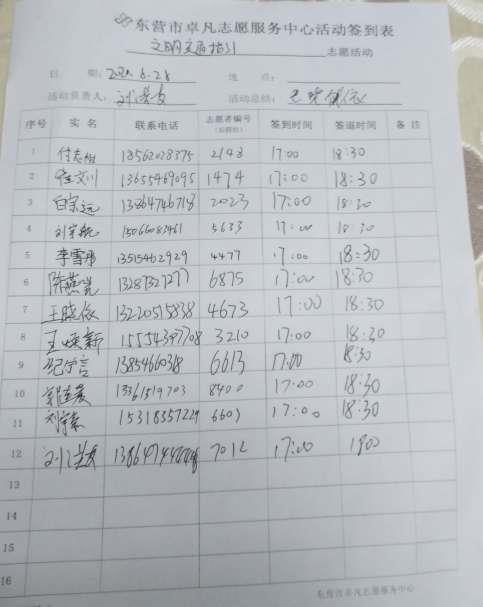 东营市卓凡志愿服务中心活动签到表
文明交通指引 志愿活动
日 期: 6.28 地 点:
活动负责人: 活动总结:
序号 实 名 联系电话 志愿者编号 签到时间 签退时间 备 注
1 13562028375 2143 17:00 18:30
2 13655469095 1474 17:00 18:30
3 白宗远 13864746718 2023 17:00 18:30
4 15066083461 5633 17:00 18:30
5 李雪彤 13515462929 4477 17:00 18:30
6 陈燕 13287327277 6875 17:00 18:30
7 王晓依 13220515838 4673 17:00 18:30
8 王焕新 15554397708 3210 17:00 18:30
9 13854660318 6613 17:00 18:30
10 13361519703 8400 17:00 18:30
11 15318357229 6609 17:00 18:30
12 7012 17:00 1900
13
14
15
16
东营市卓凡志愿服务中心